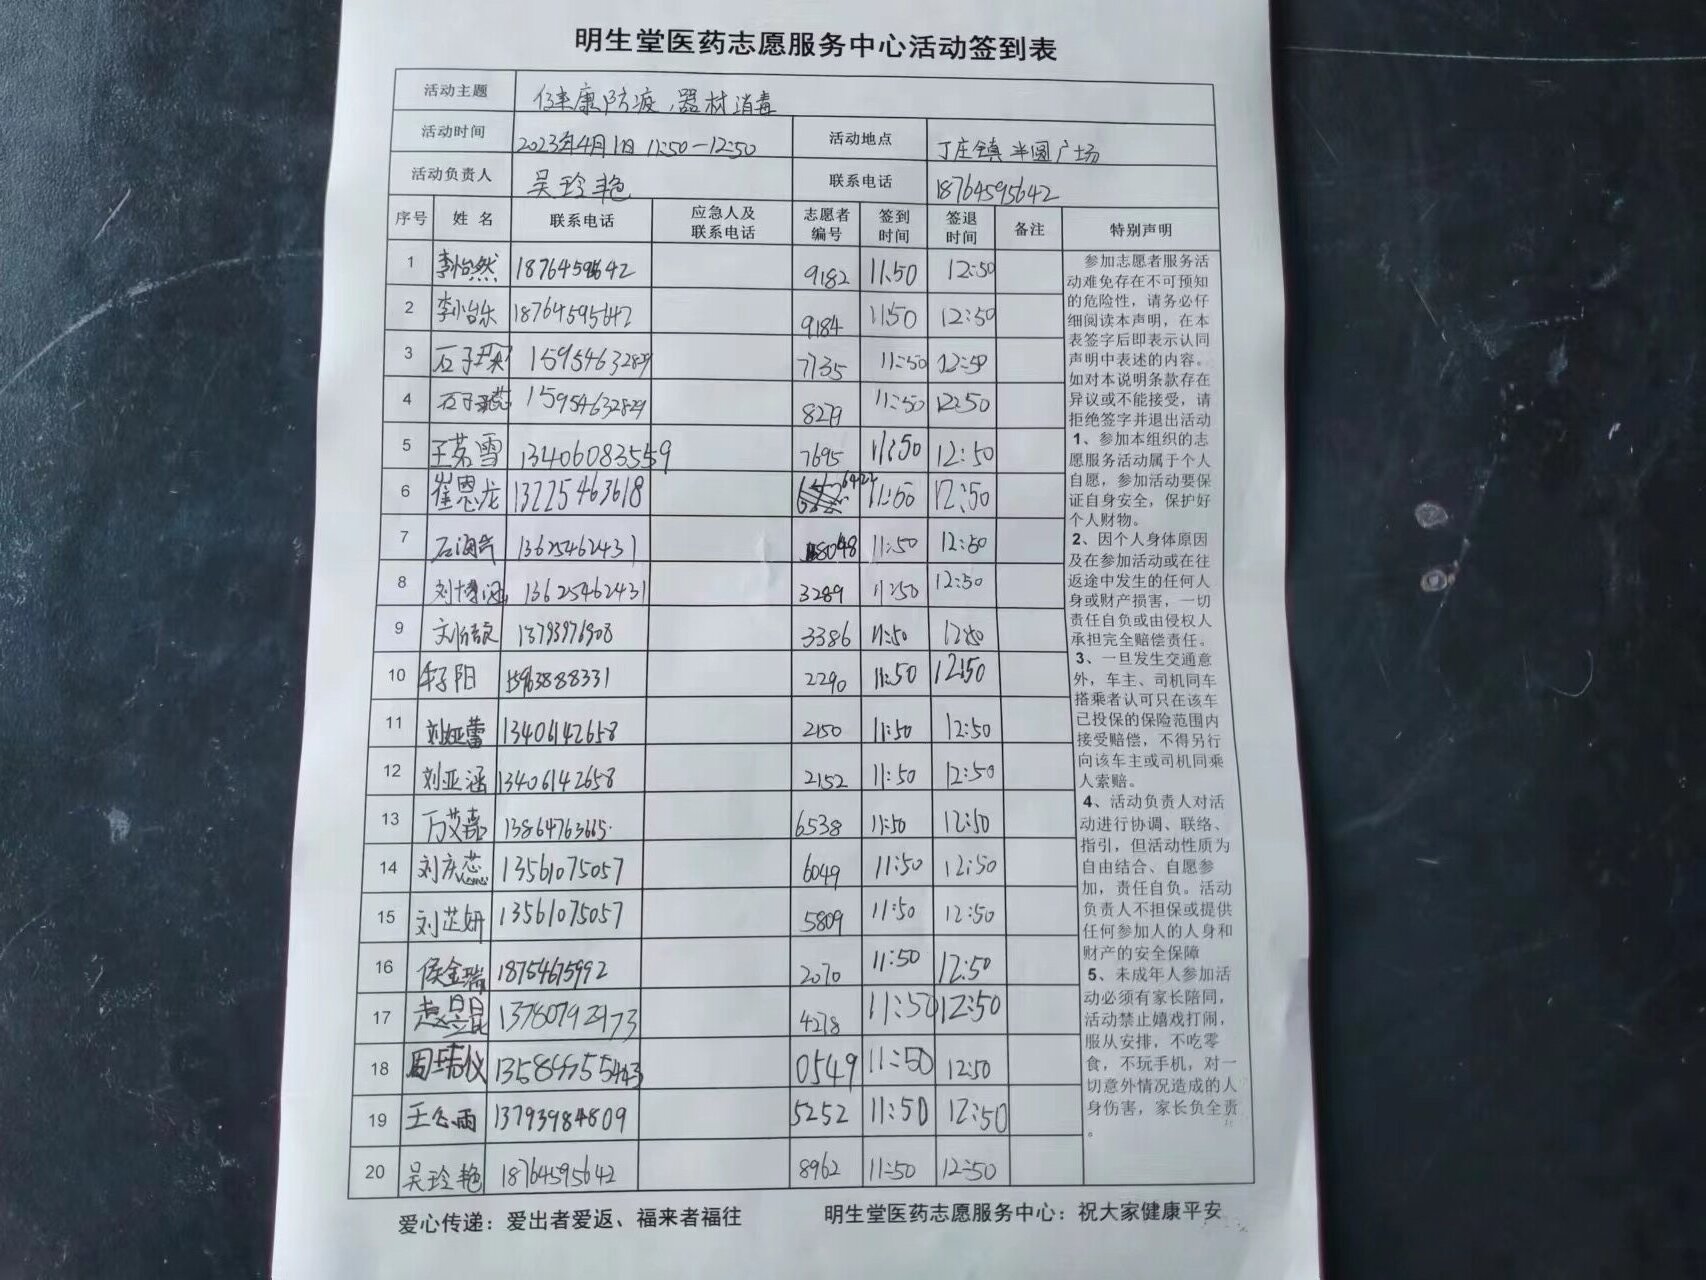 明生堂医药志愿服务中心活动签到表
活动主题 健康防疫、器材消毒
活动时间 2023年4月1日 11:50-12:50 活动地点 丁庄镇半圆广场
活动负责人 吴玲艳 联系电话 18764595642
序号 姓名 联系电话 应急人及联系电话 志愿者编号 签到时间 签退时间 备注 特别声明
1 李怡然 9182 11:50 12:50
2 李怡乐 18764595642 9184 11:50 12:50
3 石子琛 15954632829 7735 11:50 12:50
4 石子蕊 15954632829 11:50 12:50
5 王若雪 13406083559 7695 11:50 12:50
6 崔恩龙 13225463618 11:50 12:50
7 13625462431 8048 11:50 12:50
8 刘博涵 13625462431 3289 11:50 12:50
9 3386 11:50 12:50
10 15963888331 2290 11:50 12:50
11 刘娅蕾 13406142658 2150 11:50 12:50
12 刘亚涵 13406142658 2152 11:50 12:50
13 万艾嘉 13864763665 6538 11:50 12:50
14 刘庆蕊 13561075057 6049 11:50 12:50
15 刘芷妍 13561075057 5809 11:50 12:50
16 侯金瑞 18754675992 2070 11:50 12:50
17 赵昱昆 13780792973 4278 11:50 12:50
18 0549 11:50 12:50
19 13793984809 5252 11:50 12:50
20 吴玲艳 18764595642 8962 11:50 12:50
参加志愿者服务活
动难免存在不可预知
的危险性，请务必仔
细阅读本声明，在本
表签字后即表示认同
声明中表述的内容。
如对本说明条款存在
异议或不能接受，请
拒绝签字并退出活动
1、参加本组织的志
愿服务活动属于个人
自愿，参加活动要保
证自身安全，保护好
个人财物。
2、因个人身体原因
及在参加活动或在往
返途中发生的任何人
身或财产损害，一切
责任自负或由侵权人
承担完全赔偿责任。
3、一旦发生交通意
外，车主、司机同车
搭乘者认可只在该车
已投保的保险范围内
接受赔偿，不得另行
向该车主或司机同乘
人索赔。
4、活动负责人对活
动进行协调、联络、
指引，但活动性质为
自由结合、自愿参
加，责任自负。活动
负责人不担保或提供
任何参加人的人身和
财产的安全保障
5、未成年人参加活
动必须有家长陪同，
活动禁止嬉戏打闹，
服从安排，不吃零
食，不玩手机，对一
切意外情况造成的人
身伤害，家长负全责
。
爱心传递：爱出者爱返、福来者福往 明生堂医药志愿服务中心：祝大家健康平安